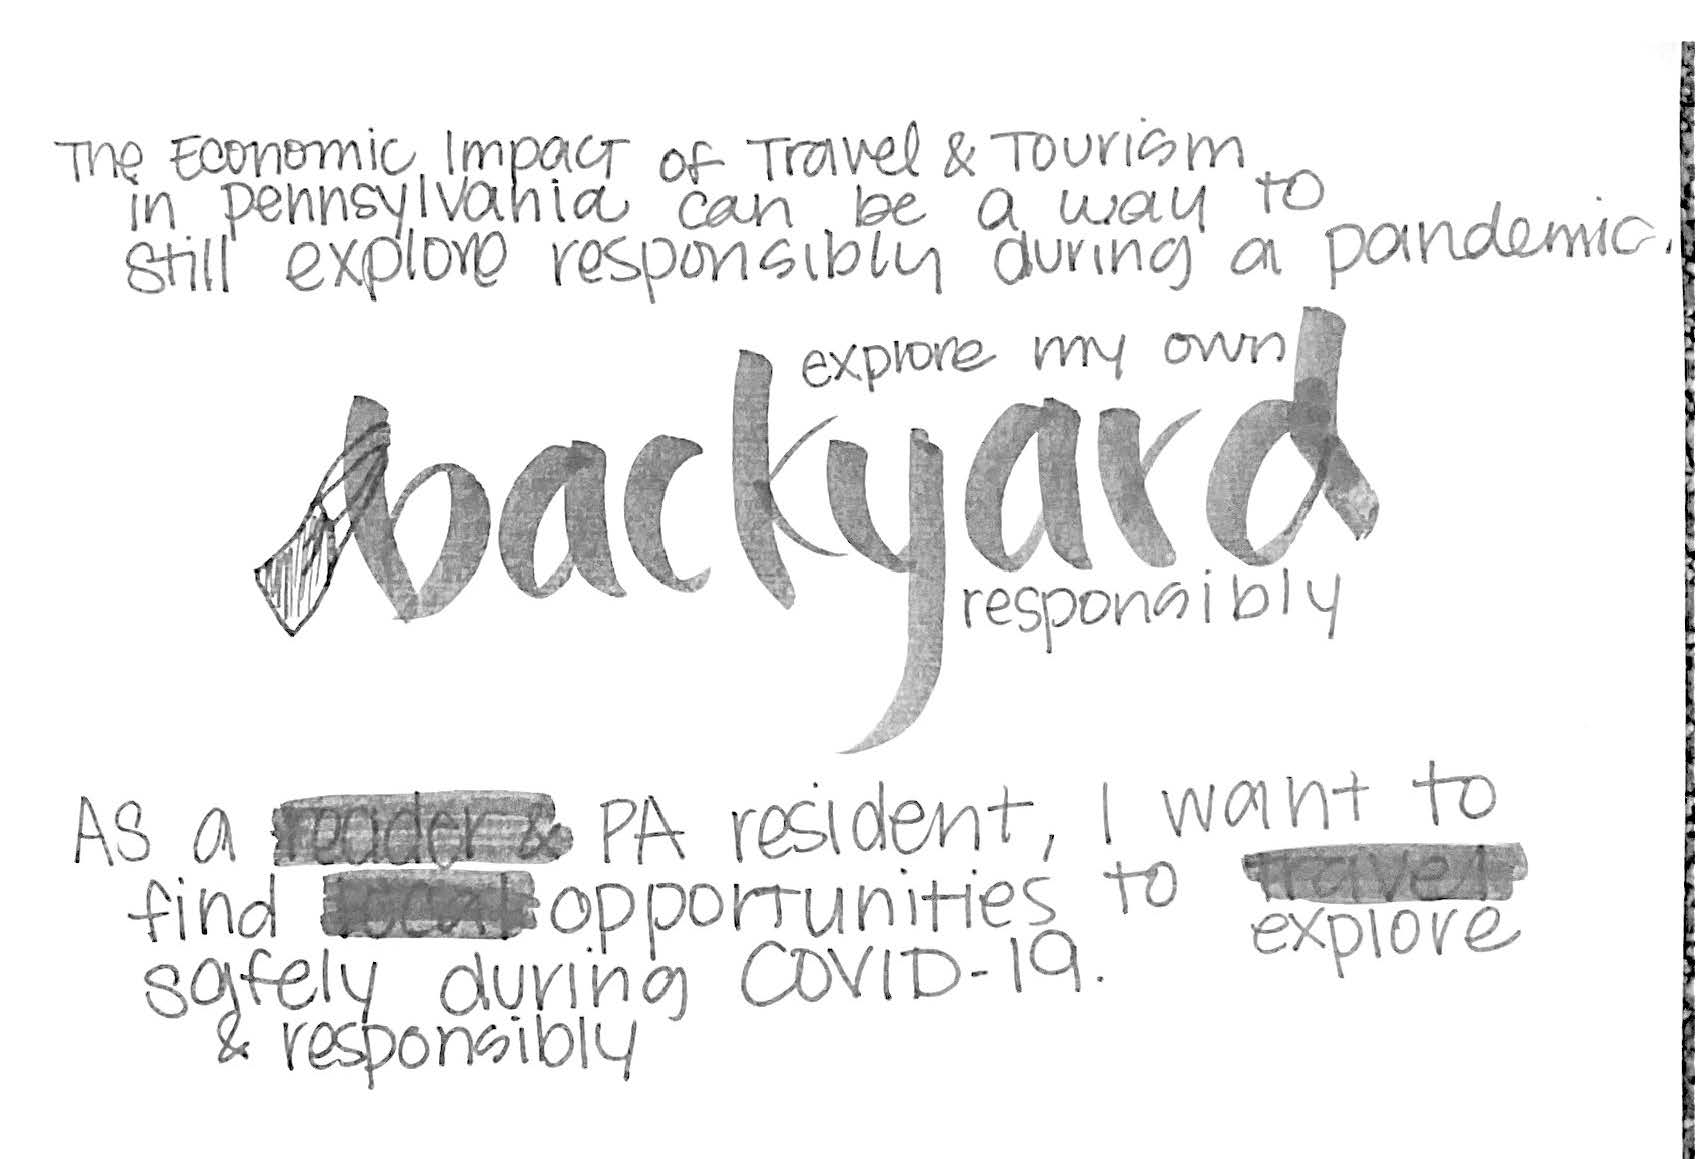 The Economic Impact of Travel & Tourism
in Pennsylvania can be a way to
still explore responsibly during a pandemic.
explore my own
backyard
responsibly
As a reader & PA resident, I want to
find local opportunities to travel
explore
safely during COVID-19.
& responsibly